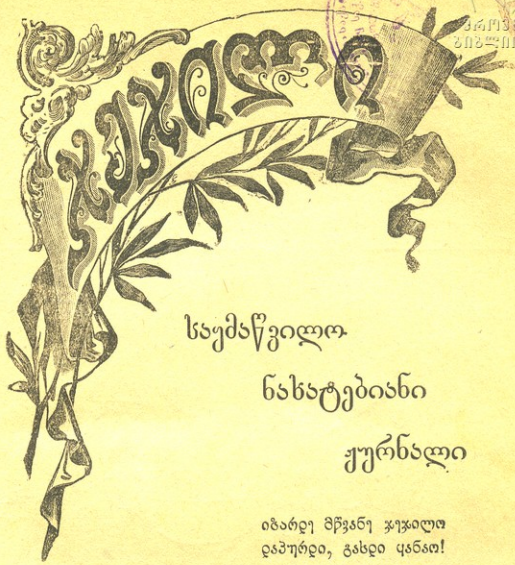 ჯეჯილი
საყმაწვილო
ნახატებიანი
ჟურნალი
იზარდე მწვანე ჯეჯილო
დაპურდი, გახდი ყანაო!